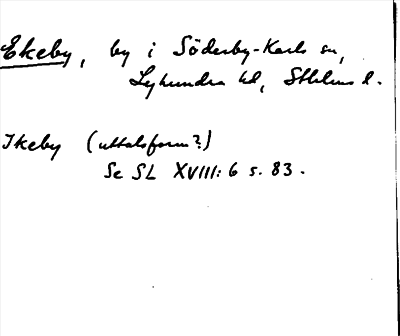 Ekeby, by i Söderby-Karls sn,
Lyhundra hd, Sthlms l.
Ikeby (uttalsform?)
Se SL XVIII: 6 s. 83.